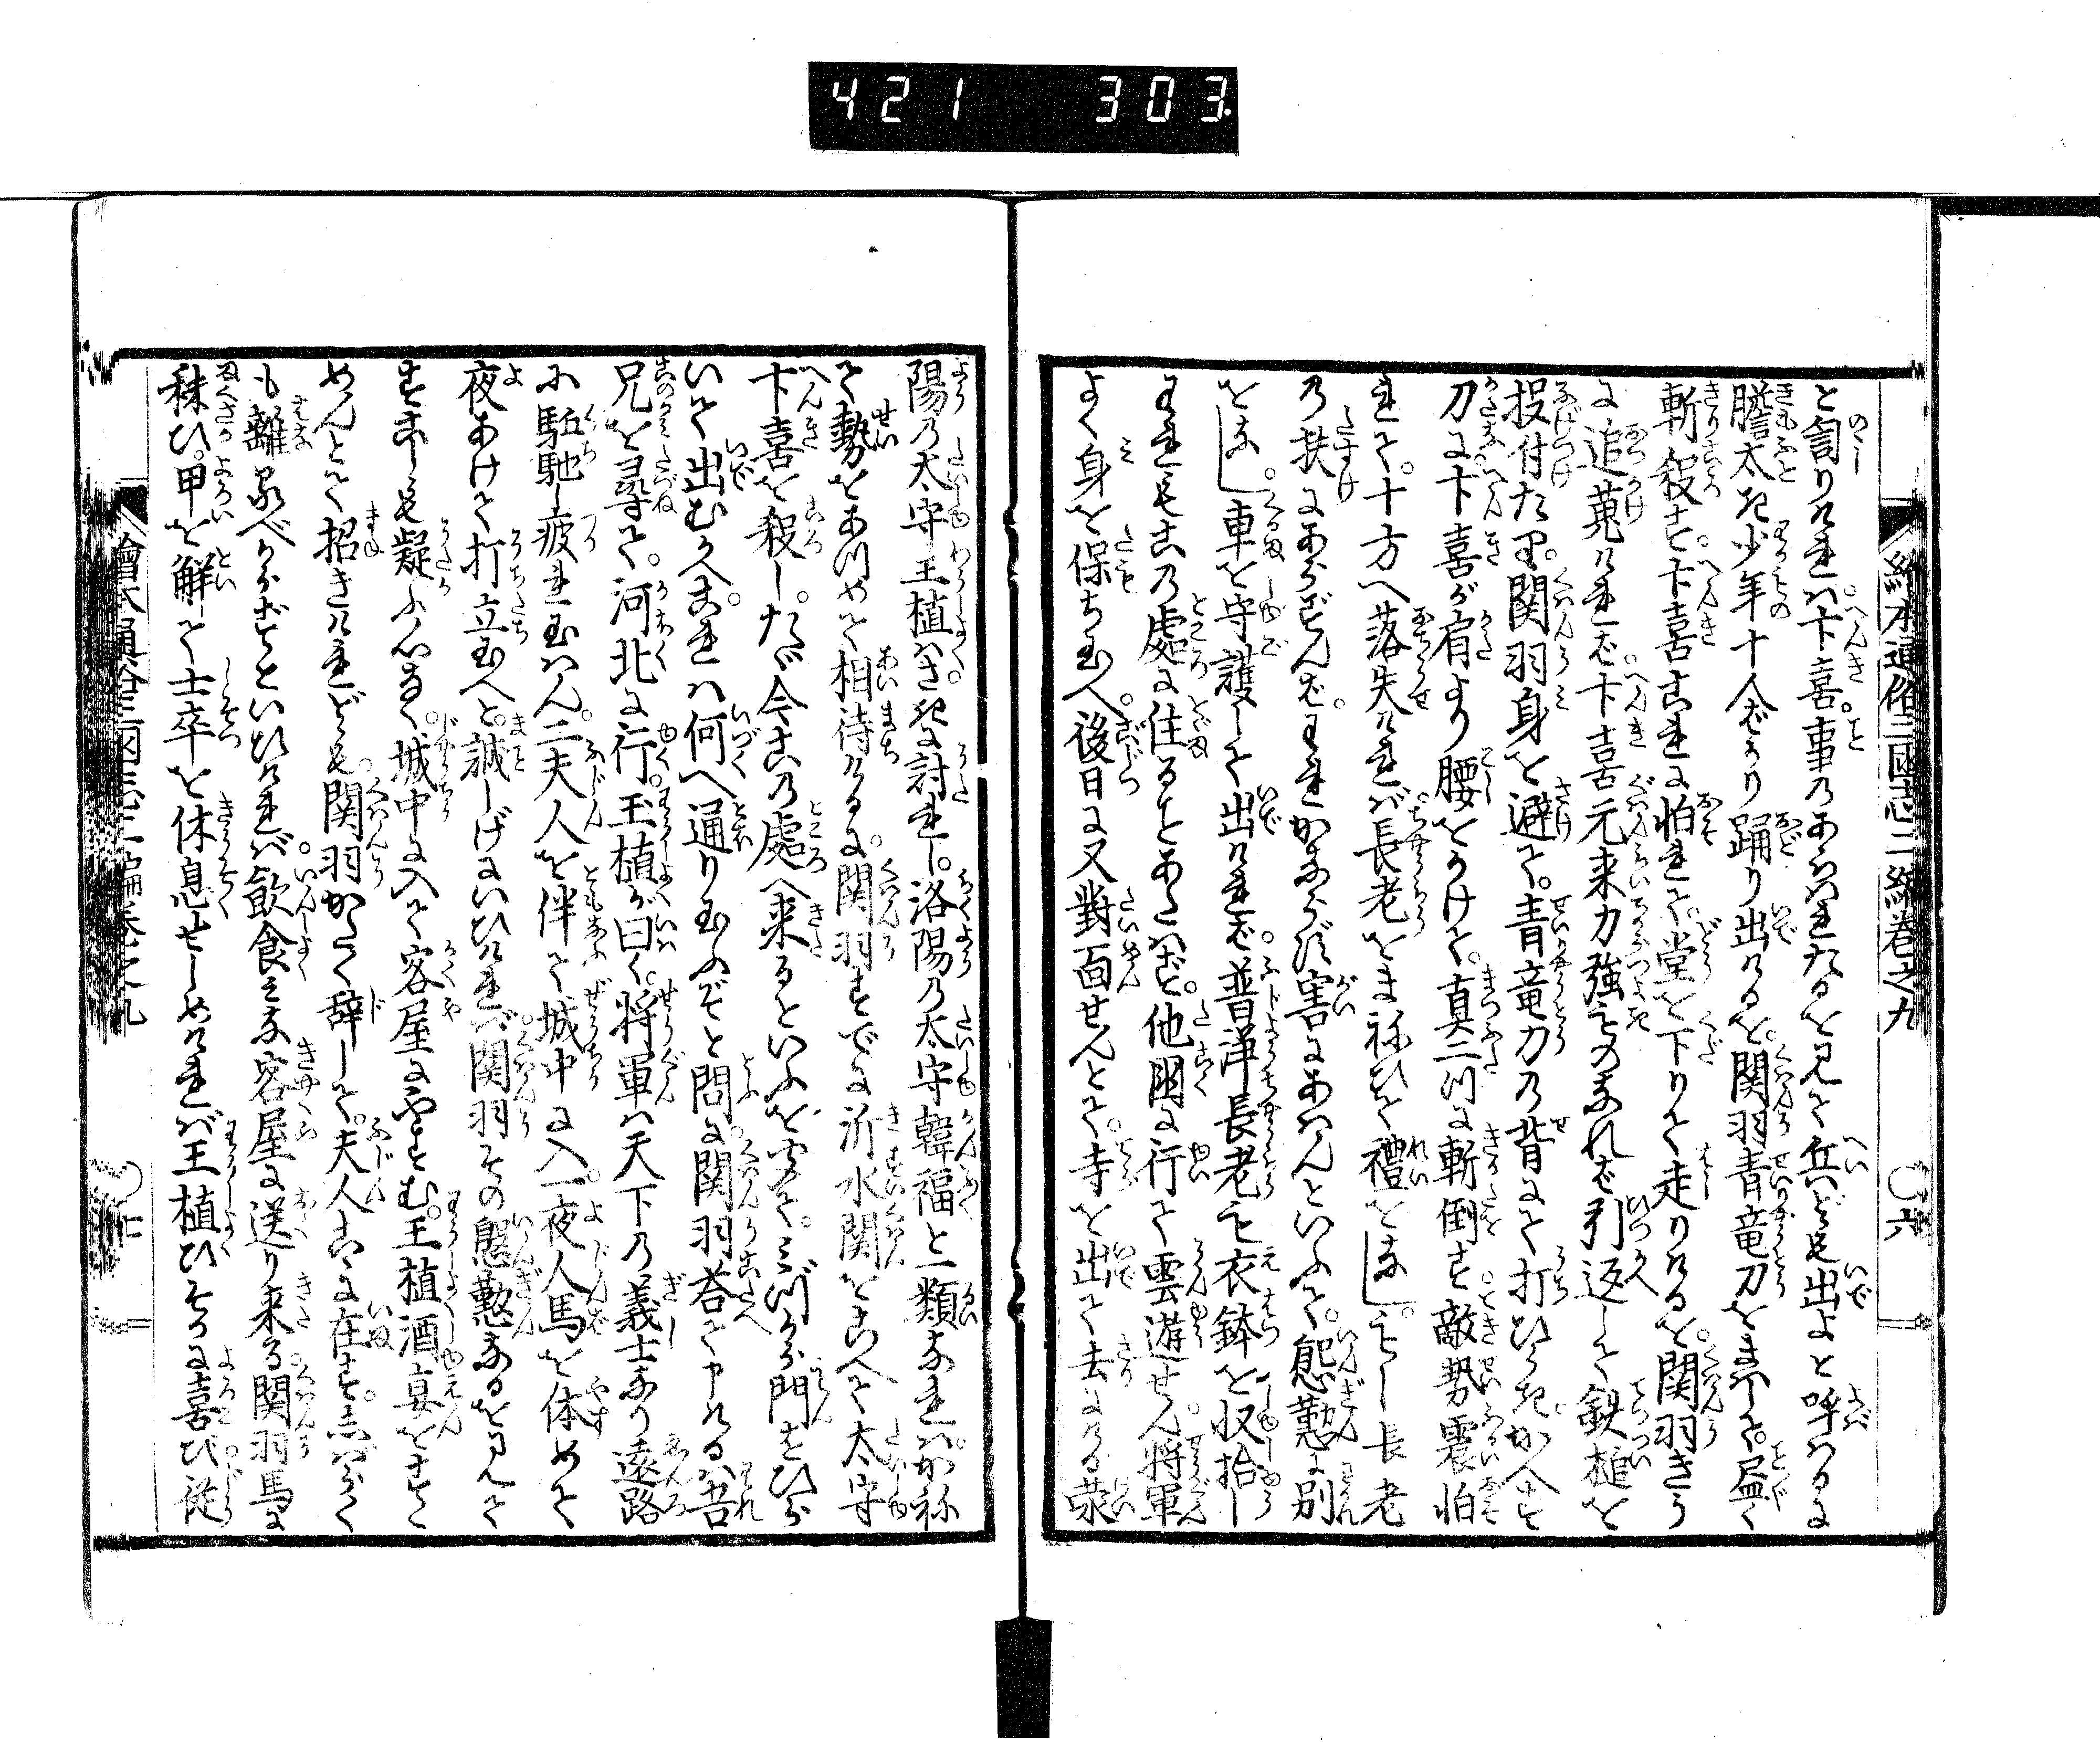 421 303
絵本通俗三国志二編巻之九 〇六
と詈りければ。卞喜。事のあらはれたるを見て兵ども出よと呼はるに
膽太き少年十人ばかり踊り出けるを。関羽青竜刀をまはして。尽く
斬殺す。卞喜これに怕れて。堂を下りて走りけるを。関羽きう
に追蒐ければ。卞喜元来力強ものなれば引返して鉄槌を
投付たり。関羽身を避て。青竜刀の背にて打ひらき。かへす
刀に卞喜が肩より腰をかけて。真二つに斬倒す。敵勢震怕
れて。十方へ落失ければ。長老をまねひて礼をなし。もし長老
の扶にあらずんば。われかならず害にあはんといふて。慇懃に別
をなし。車を守護して出ければ。普浄長老も衣鉢を収拾し
われもこの処に住ることあたはず。他国に行て雲遊せん。将軍
よく身を保ち玉へ。後日に又対面せんとて。寺を出て去にける。滎
陽の太守王植はさきに討れし。洛陽の太守韓福と一類なれば。かね
て勢をあつめて相待けるに。関羽すでに沂水関をこへて太守
卞喜を殺し。たゞ今この処へ来るといふを聞て。みづから門をひら
いて出むかへ。これは何へ通り玉ふぞと問に。関羽答て申けるは吾
兄を尋て。河北に行。王植が曰く。将軍は天下の義士なり遠路
に駈馳し疲れ玉はん。二夫人を伴て城中に入。一夜人馬を休めて
夜あけて打立玉へと。誠しげにいひければ。関羽その慇懃なるを見て
すこしも疑ふ心なく。城中に入て客屋にやすむ。王植酒宴をすゝ
めんとて招きけれども。関羽かたく辞して。夫人こゝに在す。しばらく
も離るべからずといひければ。飲食みな客屋に送り来る。関羽馬に
秣ひ。甲を解て士卒を休息せしめければ王植ひそかに喜び。従
繪本通俗三国志二編巻之九 〇七